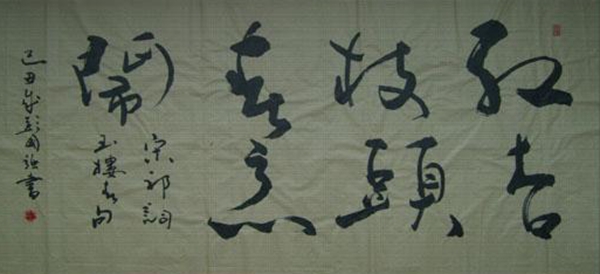 紅杏
枝頭
春意
鬧
宋祁詞
玉樓春句
己丑歲 書